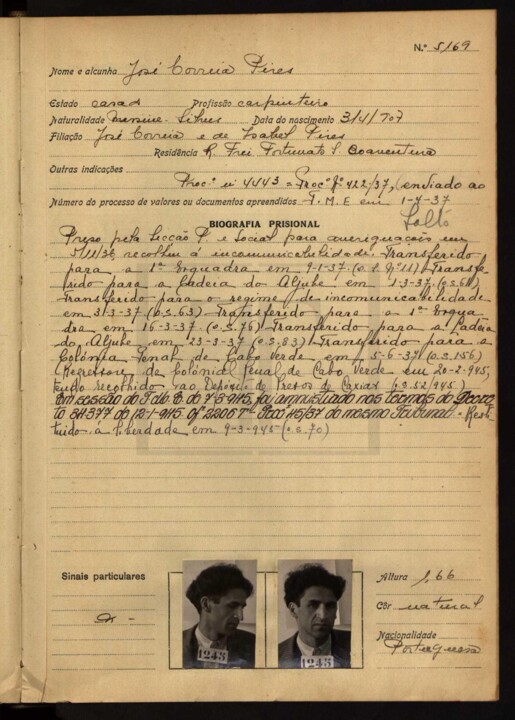 N.º 5169
Nome e alcunha José Correia Pires
Estado casado Profissão carpinteiro
Naturalidade Messine - Silves Data do nascimento 3/4/907
Filiação José Correia e de Isabel Pires
Residência R. Frei Fortunato S. Boaventura
Outras indicações
Proc.º nº 4443 = Proc.º Jº 422/37, (enviado ao
Número do processo de valores ou documentos apreendidos T. M. E em 1-7-37
Solto
BIOGRAFIA PRISIONAL
Preso pela Secção P. e Social para averiguações em
recolheu á incomunicabilidade. Transferido
para a 1ª Esquadra em 9-1-37 Transfe
rido para a Cadeia do Aljube em 1-3-37
Transferido para o regime de incomunicabilidade
em 3-3-37 (o.s. 63) Transferido para a 1ª Esqua
dra em 16-3-37 (o.s. 76) Transferido para a Cadeia
do Aljube em 23-3-37 (o.s. 83) Transferido para a
Colónia Penal de Cabo Verde em 5-6-37 (o.s. 156)
Regressou da Colonia Penal de Cabo Verde em 20-2-945,
tendo recolhido ao Deposito de Presos de Caxias (o.s. 52/945)
Em sessão do T.M.E. de 7-3-945, foi amnistiado nos termos do Decre
to 34377 de 12-1-945 of 2206 Proc 45/37 do mesmo Tribunal. Resti
tuido á liberdade em 9-3-945 (o.s. 70)
Sinais particulares
Altura 1,66
Côr natural
Nacionalidade
Portuguesa
1243
1243